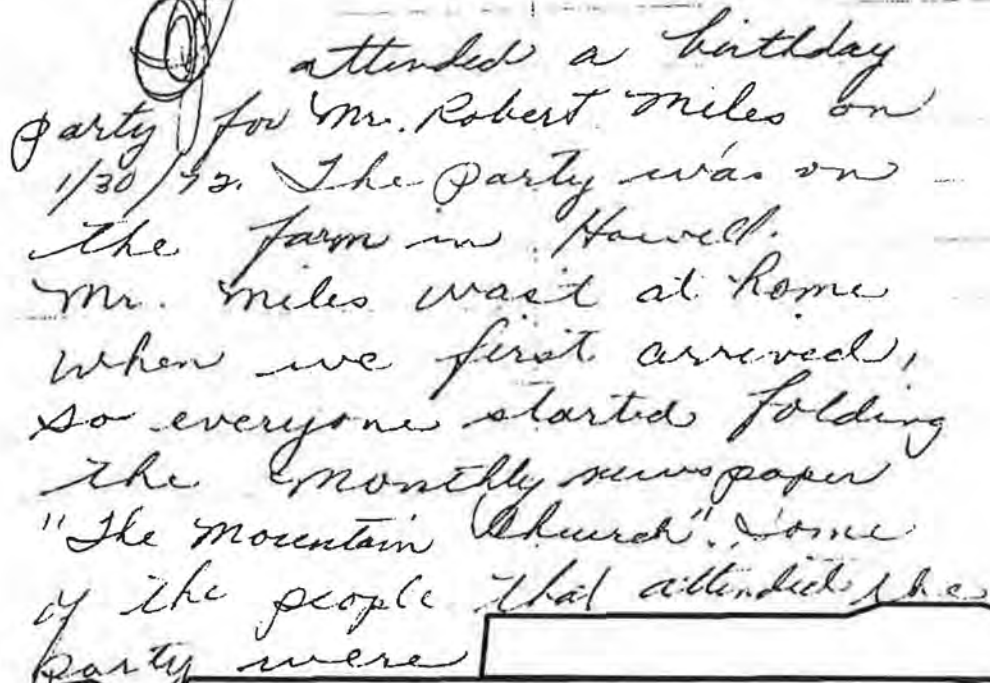 attended a birthday
party for Mr. Robert Miles on
1/30/72. The party was on
the farm in Howell.
Mr. Miles wasit at home
when we first arrived,
so everyone started folding
the monthly newspaper
"The Mountain Church". Some
of the people that attended the
party were